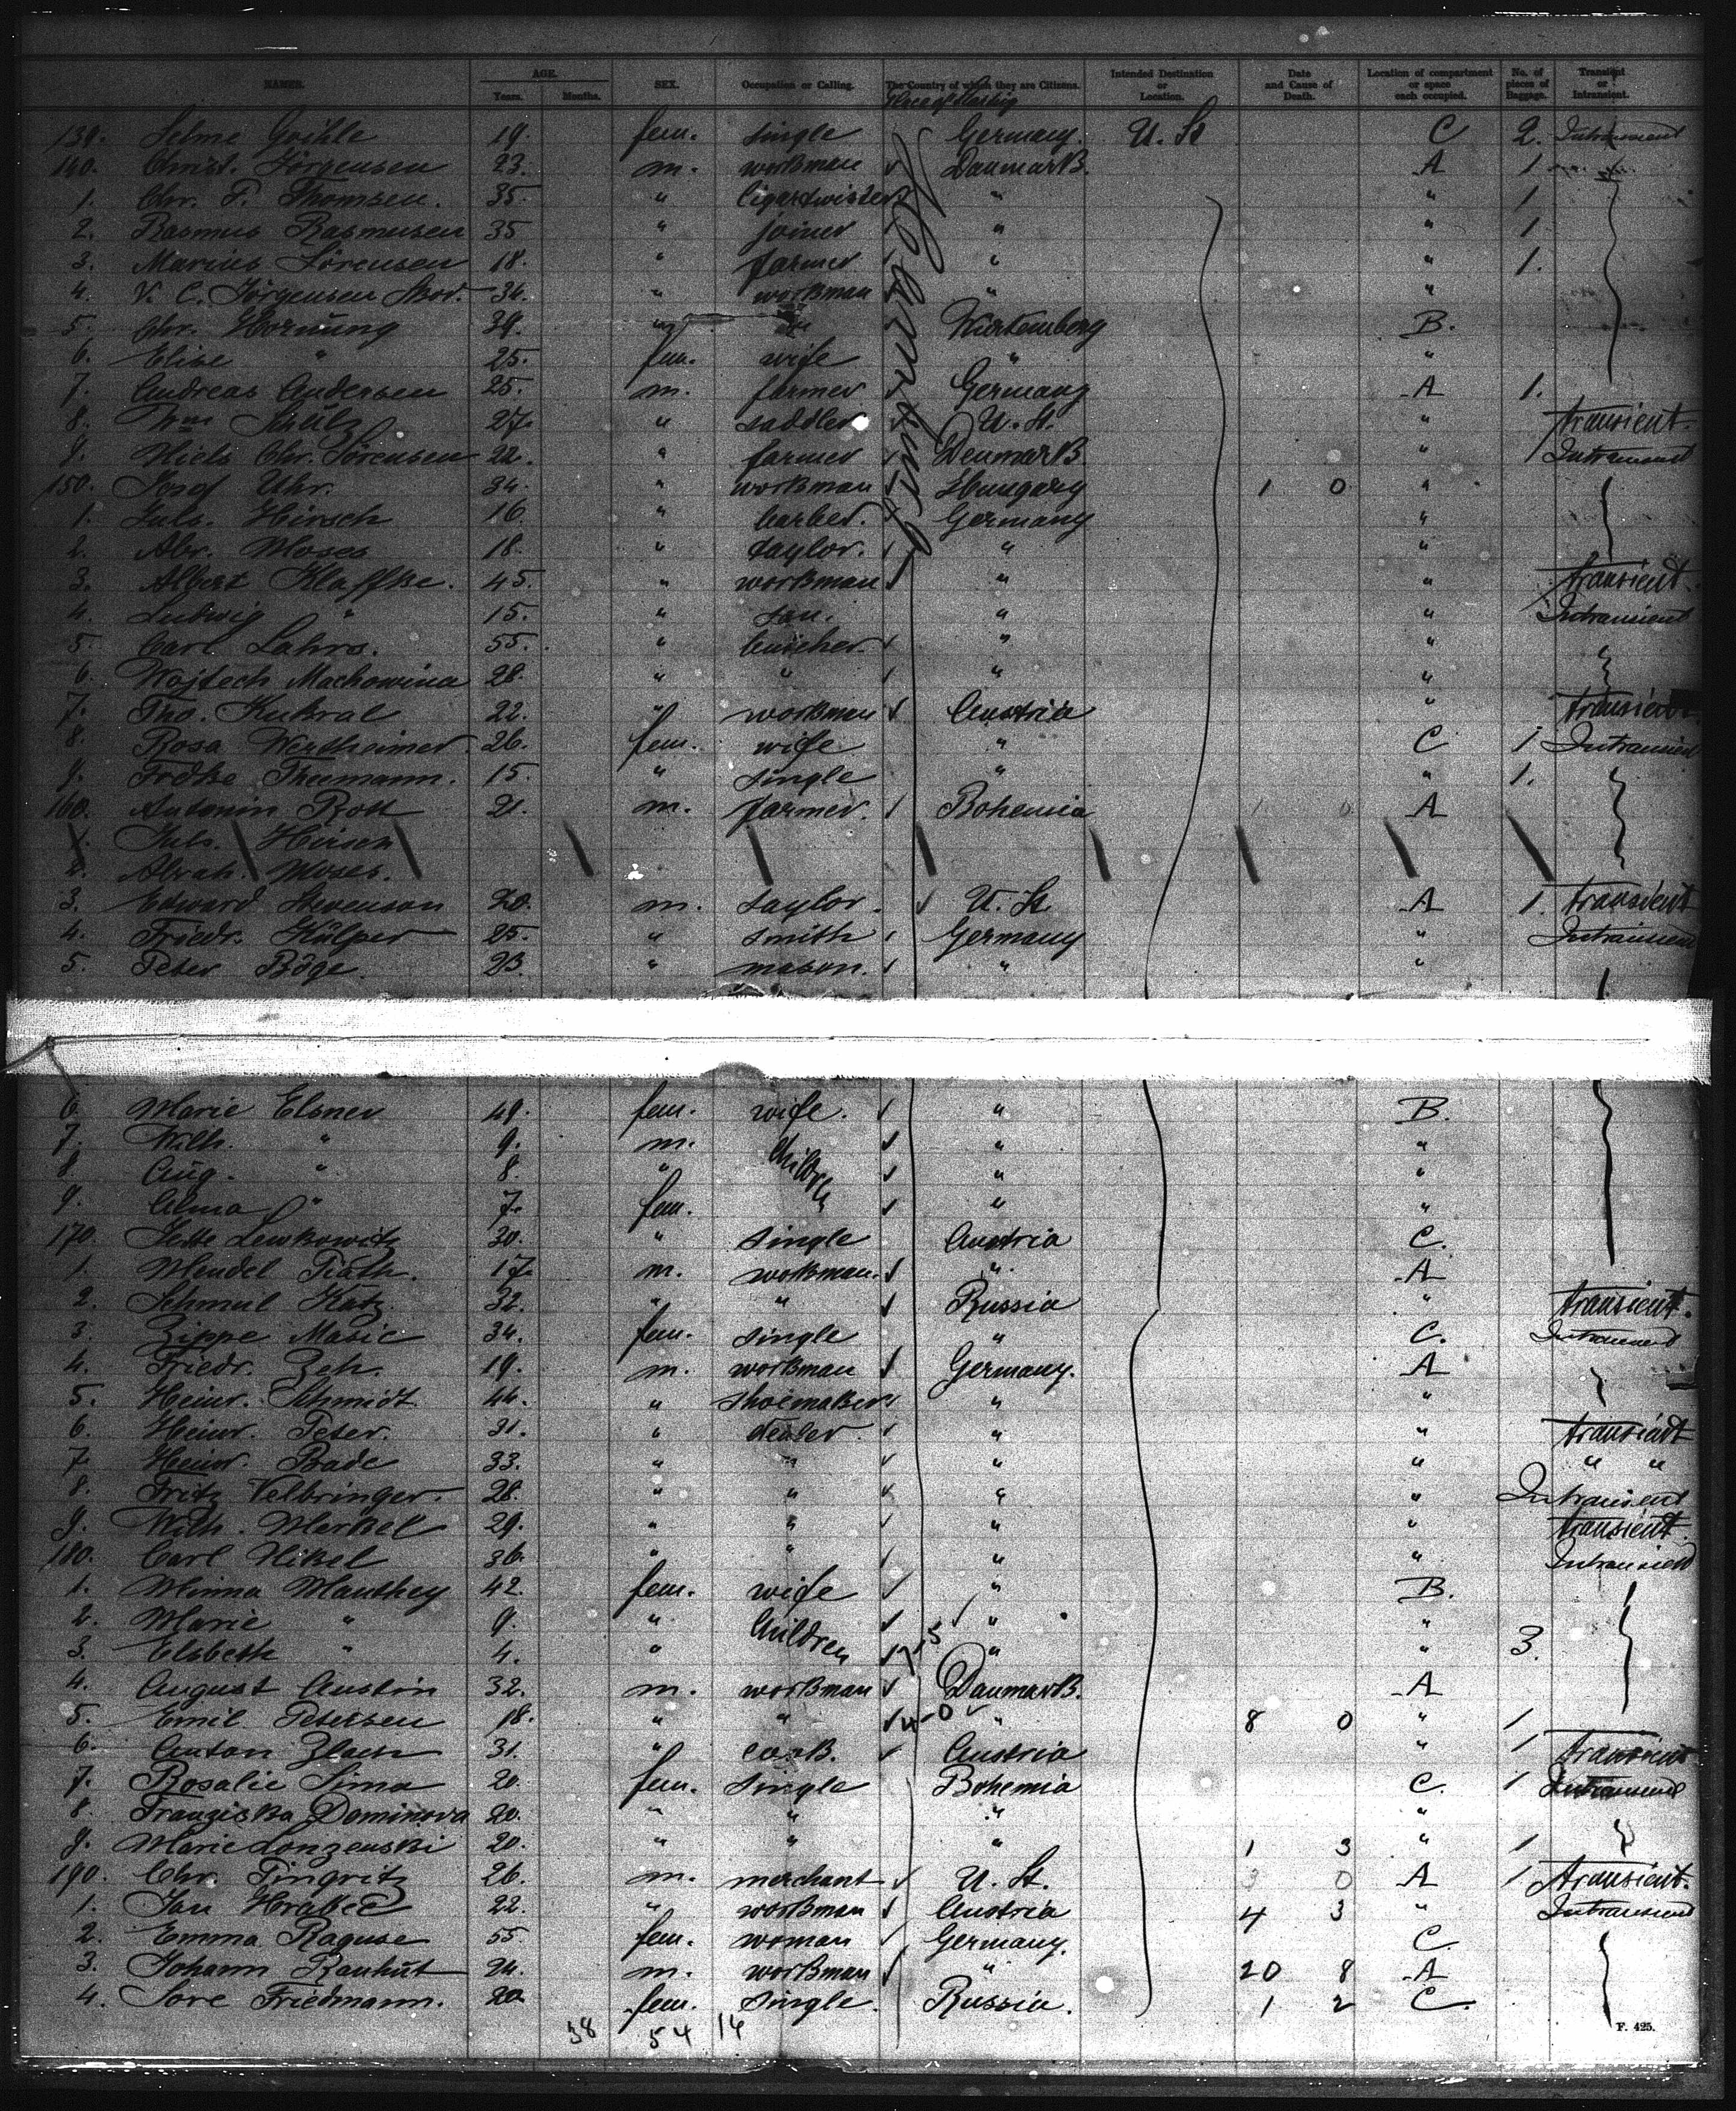 NAMES. AGE. Years. Months. SEX. Occupation or Calling. The Country of which they are Citizens. Intended Destination or Location. Date and Cause of Death. Location of compartment or space each occupied. No. of pieces of Baggage. Transient or Intransient.
139. Selme 19. fem. single Germany. U. St C 2. Intransient
140. Christ. Jörgensen 23. m. workman Danmark. A 1
1. Chr. P. Thomsen. 35. " Cigartwister " " 1
2. Rasmus Rasmussen 35 " joiner " " 1
3. Marius Sörensen 18. " farmer " " 1.
4. V. C. Jörgensen 34. " workman " "
5. Chr. Hornung 39. " " Würtemberg B.
6. Elise " 25. fem. wife " "
7. Andreas Andersen 25. m. farmer Germany A 1.
8. Wm 27. " saddler U. St. " transient.
9. Niels Chr. Sörensen 22. " farmer Denmark " Intransient
150. Josef Uhr. 34. " workman Hungary 1 0 "
1. Juls. Hirsch 16. " barber. Germany "
2. Abr. Moses 18. " taylor. " "
3. Albert Klaffke. 45. " workman " " transient.
4. Ludwig " 15. " son. " " Intransient
5. Carl Lahrs. 55. " butcher " "
6. Wojtech Machowina 28. " " " "
7. Tho. Kukral 22. " workman Austria " transient
8. Rosa Wertheimer. 26. fem. wife " C 1 Intransient
9. Frdke Theemann. 15. " single " " 1.
160. Antonin Rott 21. m. farmer. Bohemia A
1. Juls. Hirsch
2. Abrah. Moses.
3. Edward Stevenson 20. m. taylor. U. St. A 1. transient
4. Friedr. Külper 25. " smith Germany " Intransient
5. Peter Böge. 23. " mason. " "
6. Marie Elsner 49. fem. wife. " B.
7. Wilh. " 9. m. Children " "
8 Aug. " 8. " " "
9. Alma " 7. fem. " " "
170. Jette Lewkowitz 30. " single Austria C.
1. Mendel 17. m. workman. " A
2. Schmul Katz. 32. " " Russia " transient.
3. Zippe Masic 34. fem. single " C. Intransient
4. Friedr. Zeh. 19. m. workman Germany. A
5. Heinr. Schmidt 44. " shoemaker " "
6. Heinr. Peter. 31. " dealer. " " transient
7. Heinr. Bade 33. " " " " " "
8. Fritz Velbringer. 28. " " " " Intransient
9. Wilh. Merkel 29. " " " " transient
180. Carl Nikel 36. " " " " Intransient
1. Minna Manthey 42. fem. wife " B.
2. Marie " 9. " Children " "
3. Elsbeth " 4. " " " 3.
4. August Austin 32. m. workman Danmark. A
5. Emil Petersen 18. " " " 8 0 " 1
6. Anton 31. " cook. Austria " 1 transient
7. Rosalie Sima 20. fem. single Bohemia C. 1 Intransient
8. Franziska Dominova 20. " " " "
9. Marie Lonzenski 20. " " " 1 3 " 1
190. Chr. Tingritz 26. m. merchant U. St. 3 0 A 1 transient.
1. Jan Hrabec 22. " workman Austria 4 3 " Intransient
2. Emma Raguse 55. fem. woman Germany. C.
3. Johann Rauhut 24. m. workman " 20 8 A
4. Sore Friedmann. 20. fem. single. Russia. 1 2 C.
38 54 14
F. 425.